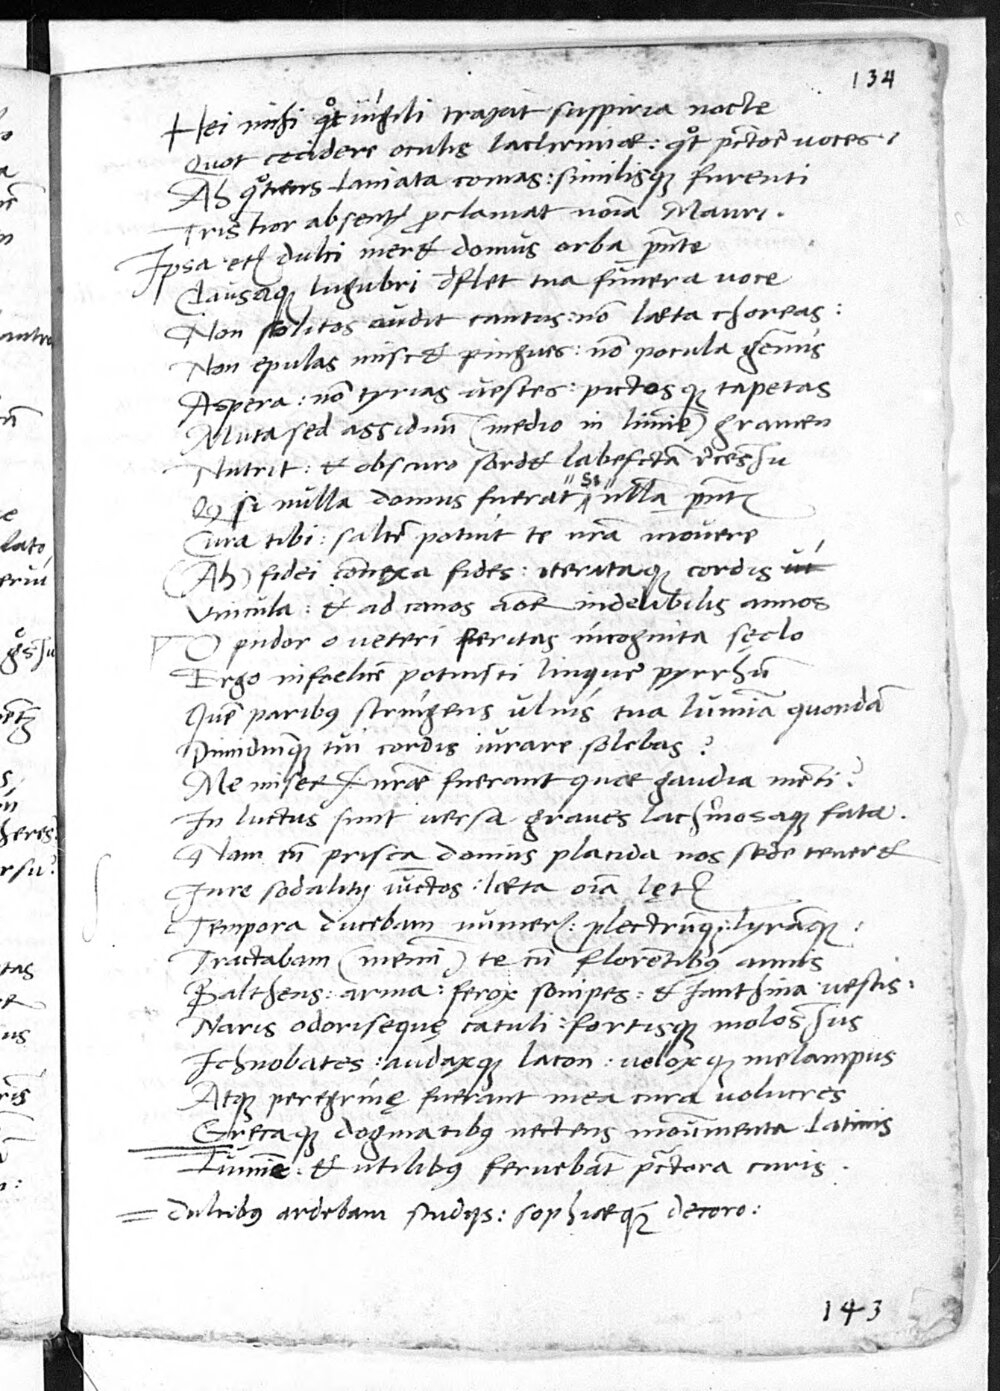 134
Hei mihi qͦt uigili trahat suspiria nocte
Quot cecidere oculis lachrimae: qͦt pectore voces.
Ah qͦtiens laniata comas: similisq; furenti
Tristior absentis proclamat noīa Mauri.
Ipsa etiā dulci meret domus orba pn̄te
Clausaq; lugubri deflet tua funera voce
Non solitos audit cantus: nō laeta choreas:
Non epulas miscet pingues: nō pocula gēmis
Aspera: nō tyrias vestes: pictosq; tapetas
Muta sed assiduū (medio in limine) gramen
Nutrit: & obscuro sordet labefcta recessu
Qͦ si nulla domus fuerat "si" ulla
Cura tibi: saltē potuit te nr̄a mouere
(Ah) fidei connexa fides: iterataq; cordis
Vincula: & ad canos indelibilis annos
O pudor o veteri feritas incognita sęclo
Ergo infoelicē potuisti linquere pyrrhū
Quē paribus stringens ulnis tua lumina quondā
Dimidiumq; tui cordis iurare solebas?
Me miserū fuerant quae gaudia menti?
In luctus sunt versa graues lachrimosaq; fata.
Nam cū prisca domus placida nos sede teneret
Iure sodalitij iunctos: laeta oīa lętis
Tempora ducebam numeris: plectrūq;: lyrāq;:
Tractabam (memini) te cū florentibus annis
Baltheus: arma: ferox sonipes: & Ianthina vestis:
Naris odorisequę catuli: fortisq; molossus
Ichnobates: audaxq; lacon: veloxq; melampus
Atq; peregrinę fuerant mea cura volucres
Grecaq; dogmatibus nectens monumenta latinis
Lumine: & utilibus feruebāt pectora curis.
Dulcibus ardebam studijs: sophiaeq; decoro:
143